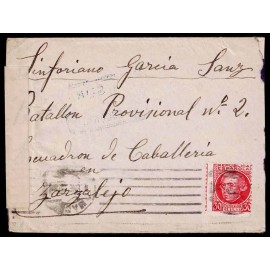 Sinforiano García Sanz
Batallon Provisional nº 2.
Escuadron de Caballería
en
Zarzalejo
30